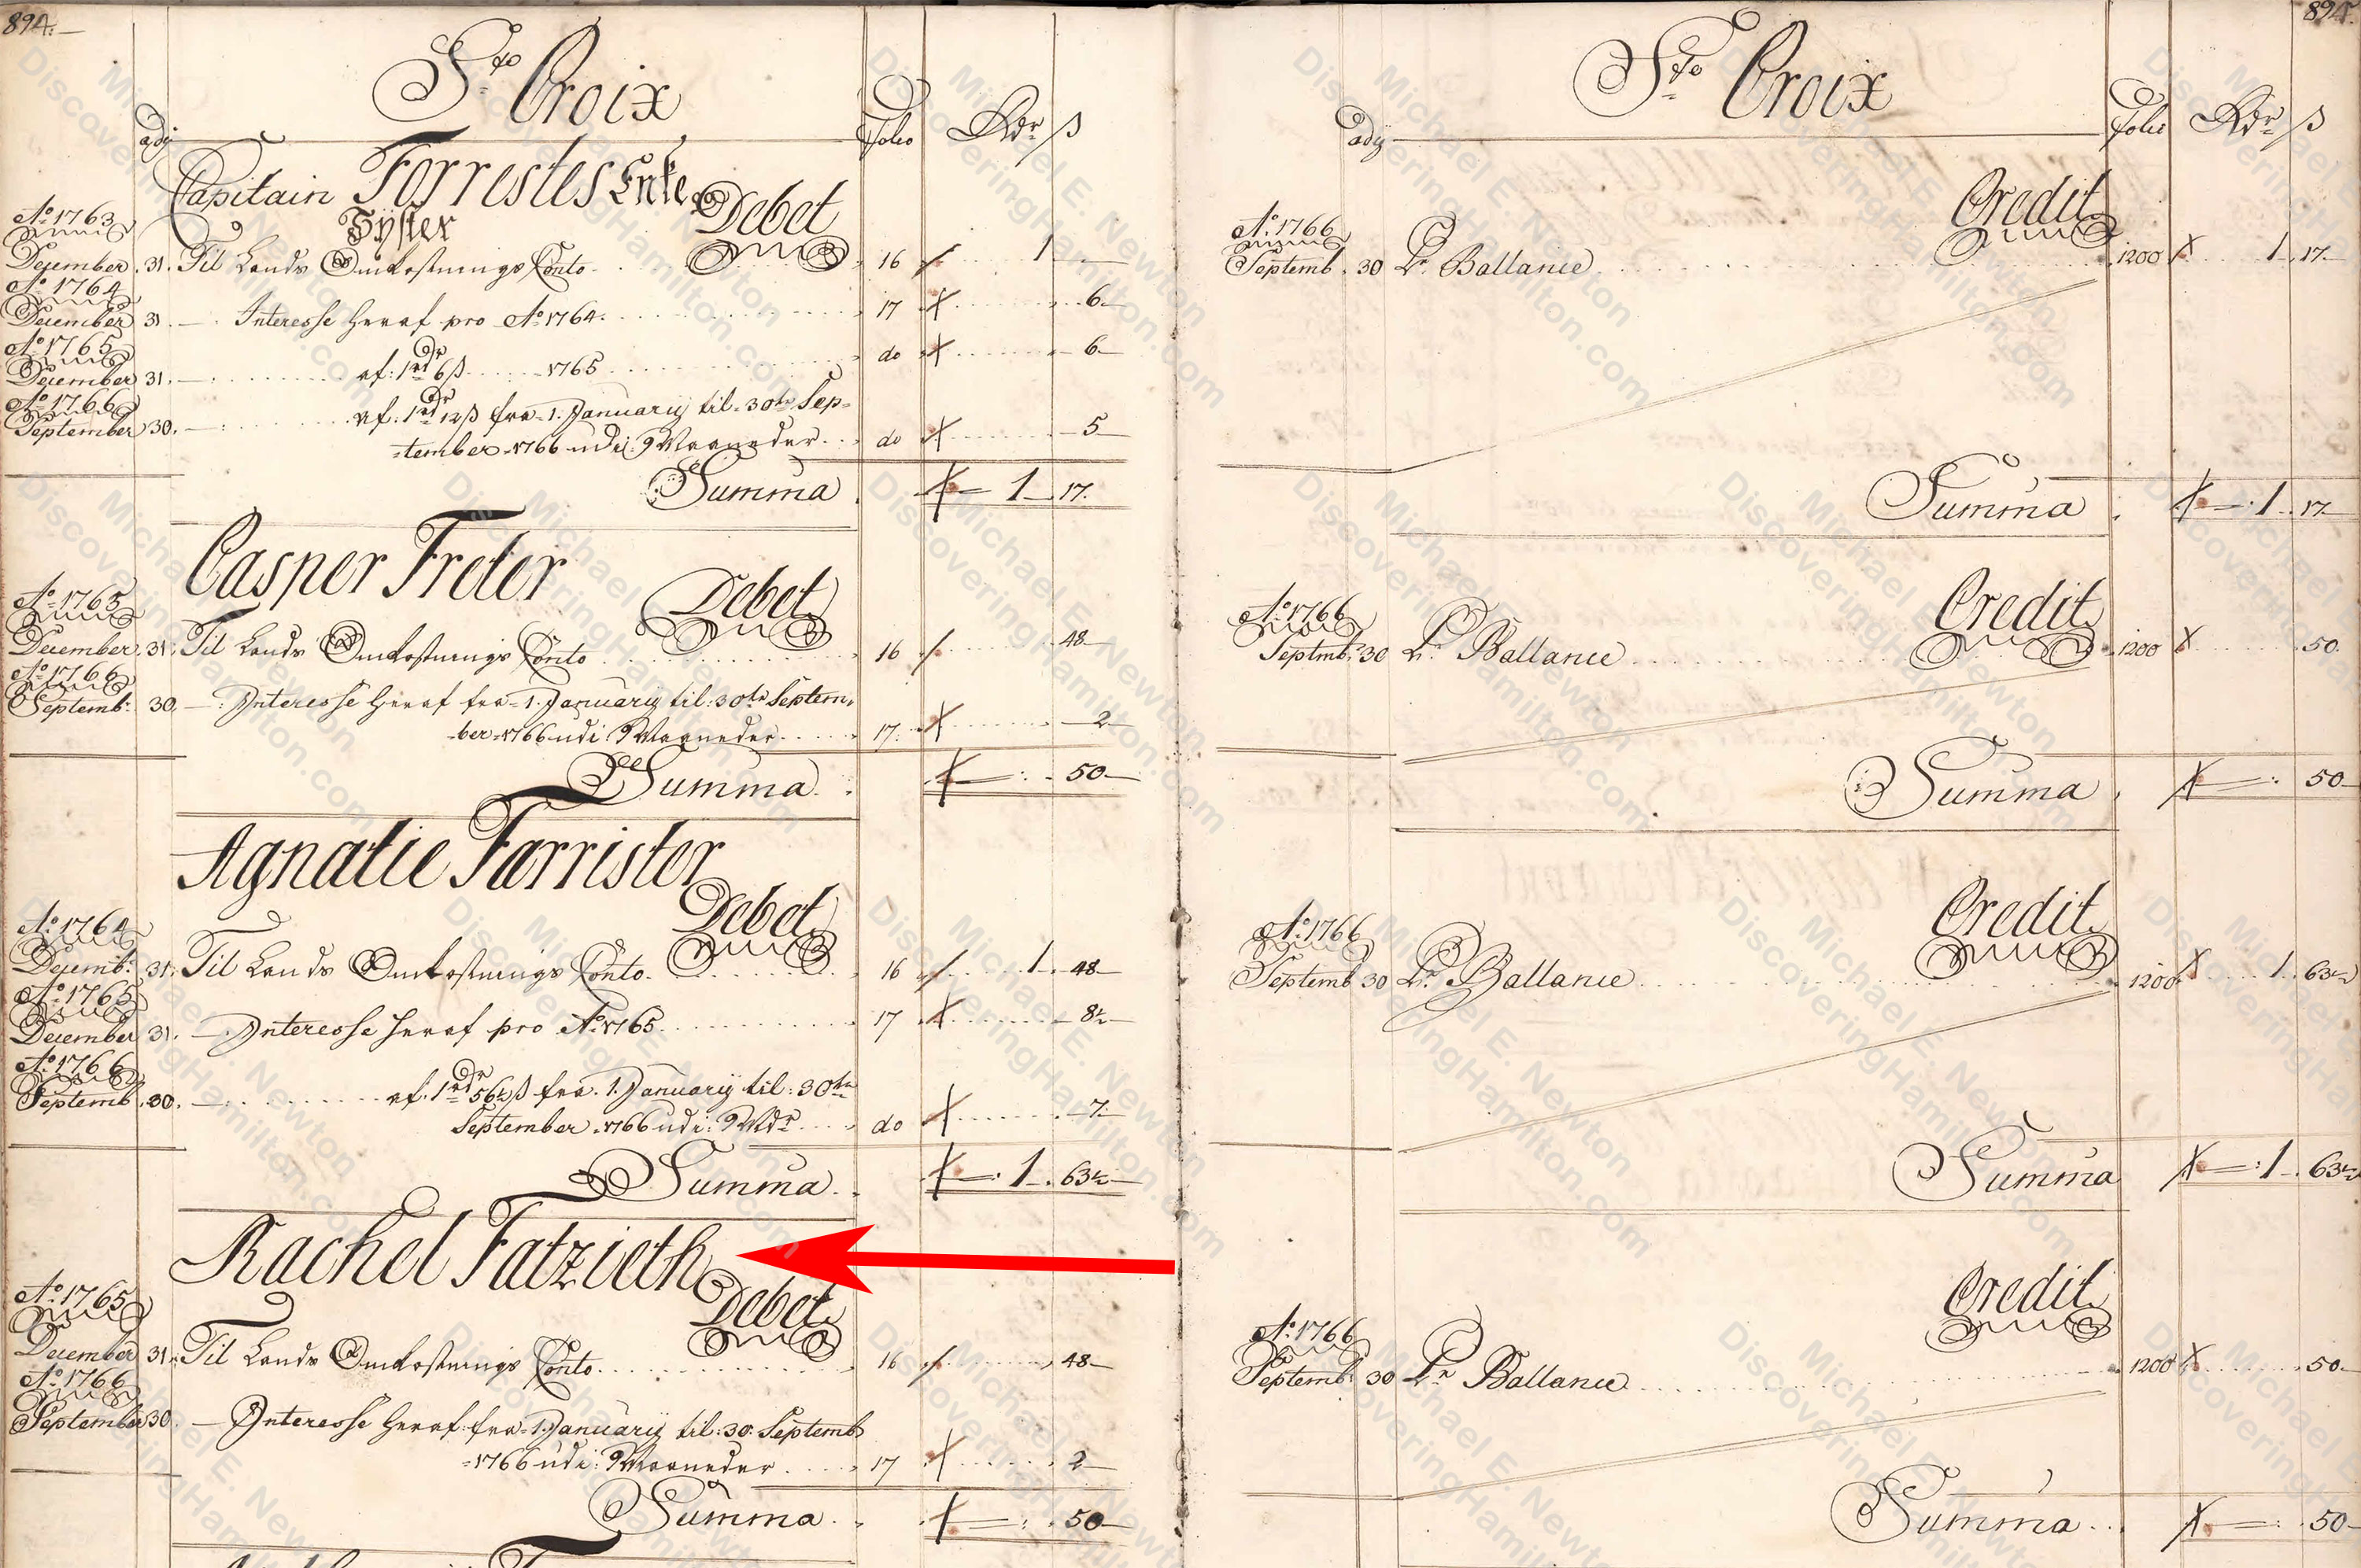 894.
Sto Croix
ady
Folio
Rdr ß
Capitain Forrestes Enke
Syster
Debet
Ao 1763
December 31. Til Lands Omkostnings Conto 16 1
Ao 1764
December 31 Interesse heraf pro Ao 1764. 17 6
Ao 1765
December 31. af: 1rdr 6ß 1765 do 6
Ao 1766
September 30. af. 1rdr 12ß fra 1. January til 30te Sep=
=tember 1766 udi 9 Maaneder do 5
Summa 1 17.
Casper Freter
Debet
Ao 1765
December 31. Til Lands Omkostnings Conto 16 48
Ao 1766
Septemb: 30. Interesse heraf fra 1. January til: 30te Septem
=ber 1766 udi 9 Maaneder 17. 2
Summa 50
Agnatie Farrister
Debet
Ao 1764
Decemb: 31. Til Lands Omkostnings Conto. 16 1. 48
Ao 1765
December 31. Interesse heraf pro Ao 1765. 17 8½
Ao 1766
Septemb 30. af. 1rdr 56½ß fra. 1. January til: 30te
September 1766 udi: 9 Mdr do 7.
Summa 1. 63½
Rachel Fatzieth
Debet
Ao 1765
December 31. Til Lands Omkostnings Conto 16 48
Ao 1766
September 30. Interesse heraf fra 1. January til: 30. Septemb
=1766 udi: 9 Maaneder 17 2
Summa 50
894.
Sto Croix
ady
Folio
Rdr ß
Credit
Ao 1766
Septemb. 30 Pr Ballance 1200 1. 17.
Summa 1. 17.
Credit
Ao 1766
Septmb: 30 Pr Ballance 1200 50.
Summa 50
Credit
Ao 1766
Septemb 30 Pr Ballance 1200 1. 63½
Summa 1. 63½
Credit
Ao 1766
Septemb: 30 Pr Ballance 1200 50
Summa 50
Michael E. Newton
DiscoveringHamilton.com